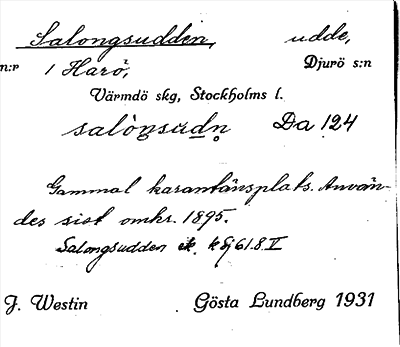 Salongsudden, udde,
n:r 1 Harö, Djurö s:n
Värmdö skg, Stockholms l.
salòŋsùdn̥ Da 124
Gammal karantänsplats. Använ-
des sist omkr. 1895.
Salongsudden ek. kSj 61.8.V
J. Westin Gösta Lundberg 1931